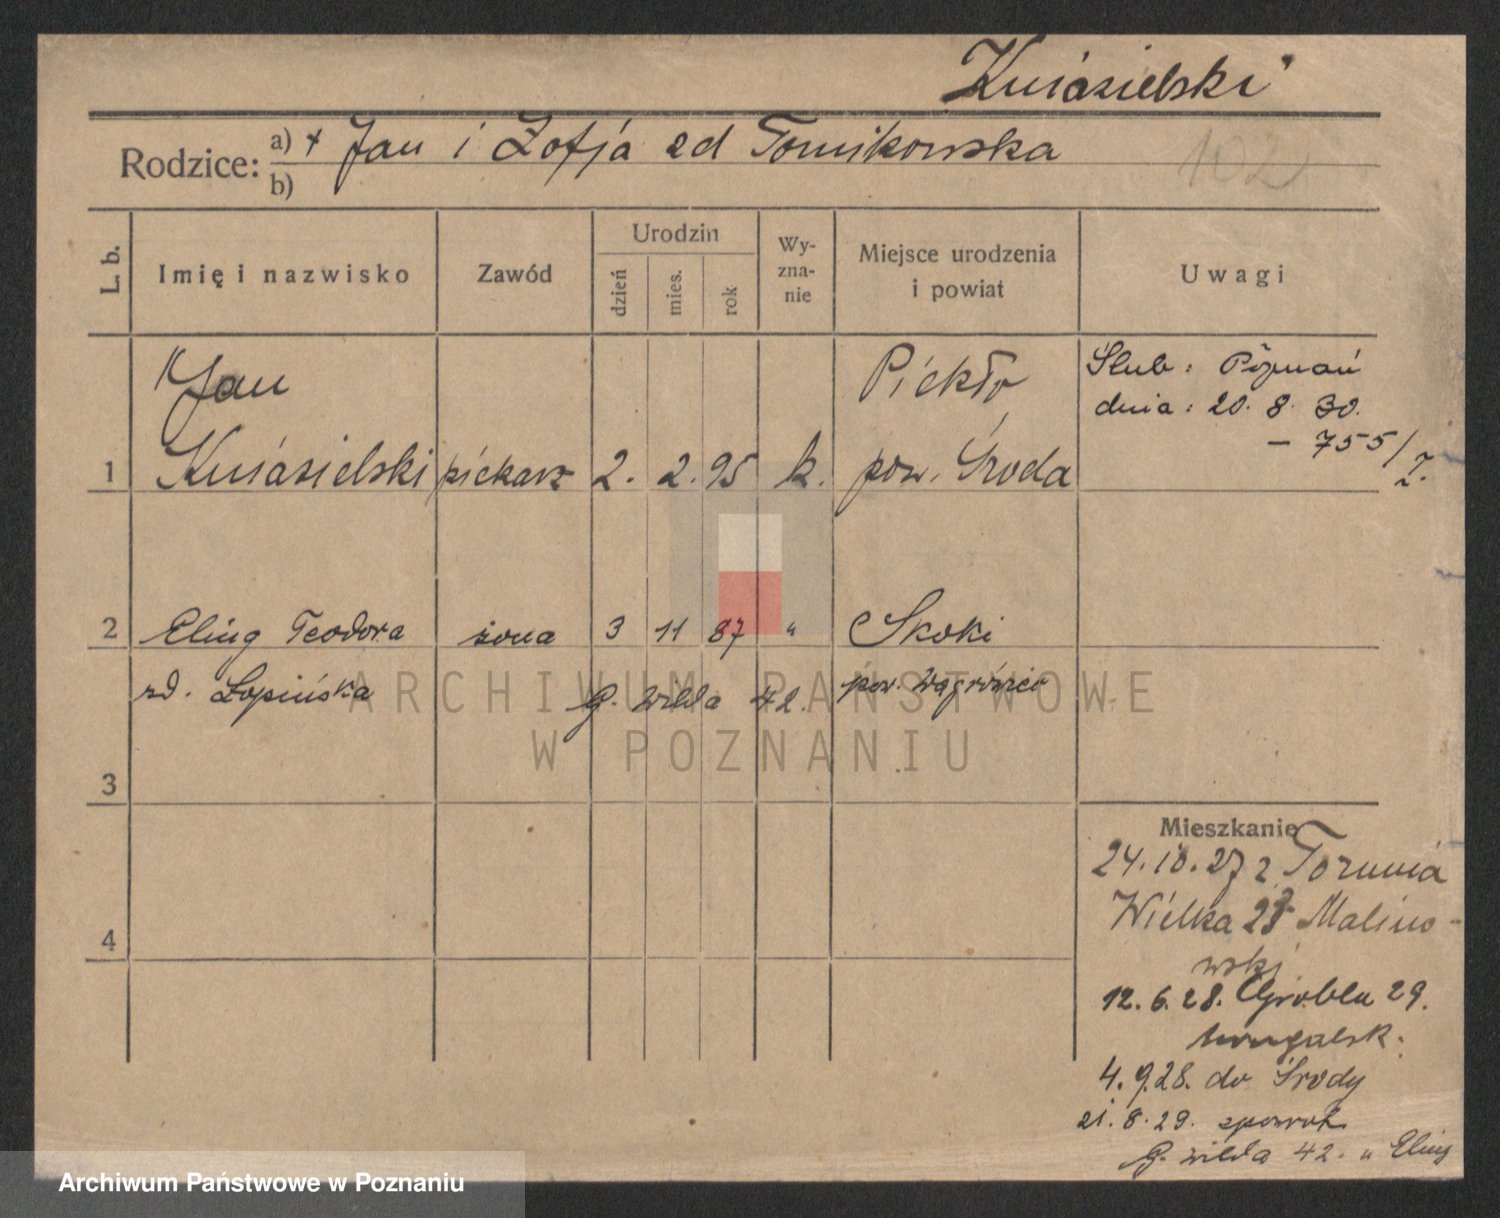 Kniasielski
Rodzice: a) + Jan i Zofja zd Tomikowska
b)
102
L. b. Imię i nazwisko Zawód Urodzin dzień mies. rok Wy-zna-nie Miejsce urodzenia i powiat Uwagi
Jan Piekło Ślub: Poznań
dnia: 20. 8. 30.
– 755/
1 Kniasielski piekarz 2. 2. 95 k. pow. Środa
2 Eling Teodora żona 3 11 87 " Skoki
zd. Łopińska G. Wilda 42. pow. Wągrówiec
3
4
Mieszkanie
24.10.27 z Torunia
Wielka 23 Malino-
wski
12. 6. 28. Grobla 29.
4. 9. 28. do Środy
21. 8. 29. zpowrot
G. Wilda 42. u Eling
ARCHIWUM PAŃSTWOWE
W POZNANIU
Archiwum Państwowe w Poznaniu